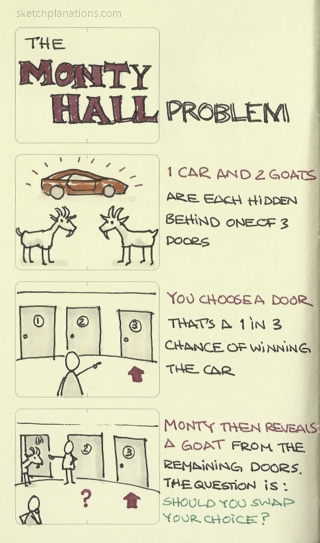 sketchplanations.com
THE
MONTY
HALL PROBLEM
1 CAR AND 2 GOATS
ARE EACH HIDDEN
BEHIND ONE OF 3
DOORS
YOU CHOOSE A DOOR
THAT'S A 1 IN 3
CHANCE OF WINNING
THE CAR
1 2 3
MONTY THEN REVEALS
A GOAT FROM THE
REMAINING DOORS.
THE QUESTION IS:
SHOULD YOU SWAP
YOUR CHOICE?
1 2 3
?